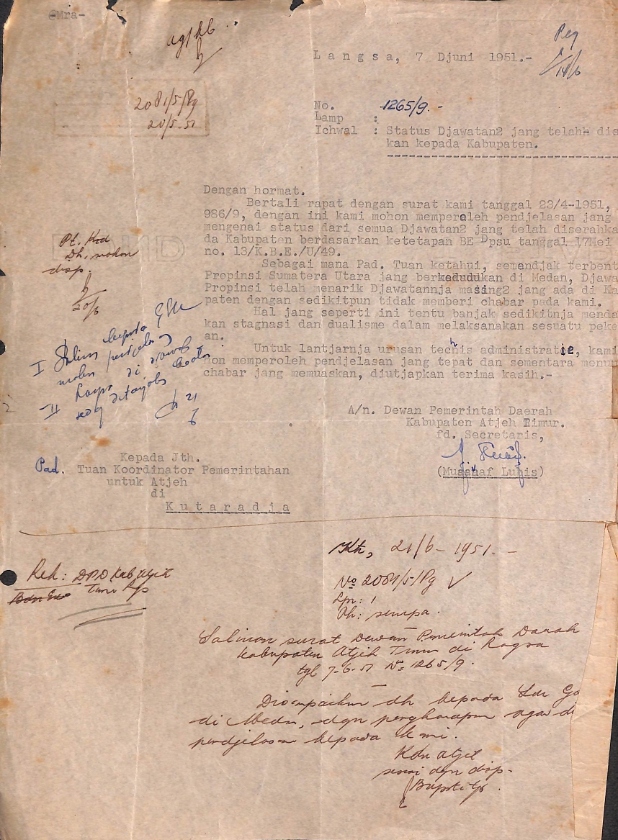 -Mra-
Langsa, 7 Djuni 1951.-
2081/5/Pg
20/5.51
No. 1265/9.-
Lamp :
Ichwal : Status Djawatan2 jang telah dis
kan kepada Kabupaten.
Dengan hormat.
Bertali rapat dengan surat kami tanggal 23/4-1951,
986/9, dengan ini kami mohon memperoleh pendjelasan jang
mengenai status dari semua Djawatan2 jang telah diserahka
da Kabupaten berdasarkan ketetapan BE Dpsu tanggal 17Mei
no. 13/K.B.E./U/49.
Sebagai mana Pad. Tuan ketahui, semandjak terbent
Propinsi Sumatera Utara jang berkedudukan di Medan, Djawa
Propinsi telah menarik Djawatannja masing2 jang ada di K
paten dengan sedikitpun tidak memberi chabar pada kami.
Hal jang seperti ini tentu banjak sedikitnja menda
kan stagnasi dan dualisme dalam melaksanakan sesuatu peke
an.
Untuk lantjarnja urusan technis administratie, kami
mohon memperoleh pendjelasan jang tepat dan sementara menun
chabar jang memuaskan, diutjapkan terima kasih.-
A/n. Dewan Pemerintah Daerah
Kabupaten Atjeh Timur.
fd. Secretaris,
(Musahaf Lubis)
Kepada Jth.
Pad. Tuan Koordinator Pemerintahan
untuk Atjeh
di
Kutaradja
20/6
I Salin kepada
II
21
6
Ktr, 21/6-1951.-
No 2081/5/Pg
Lpr: 1
Ph: serupa.
Reh: DPD Kab Atjeh
Timur
Salinan surat Dewan Pemerintah Daerah
Kabupaten Atjeh Timur di Langsa
tgl 7-6-51 No 1265/9.
Disampaikan dh kepada Sdr Go
di Medan, dgn pengharapan agar d
pendjelasan kepada kami.
Kdr Atjeh
Bupati